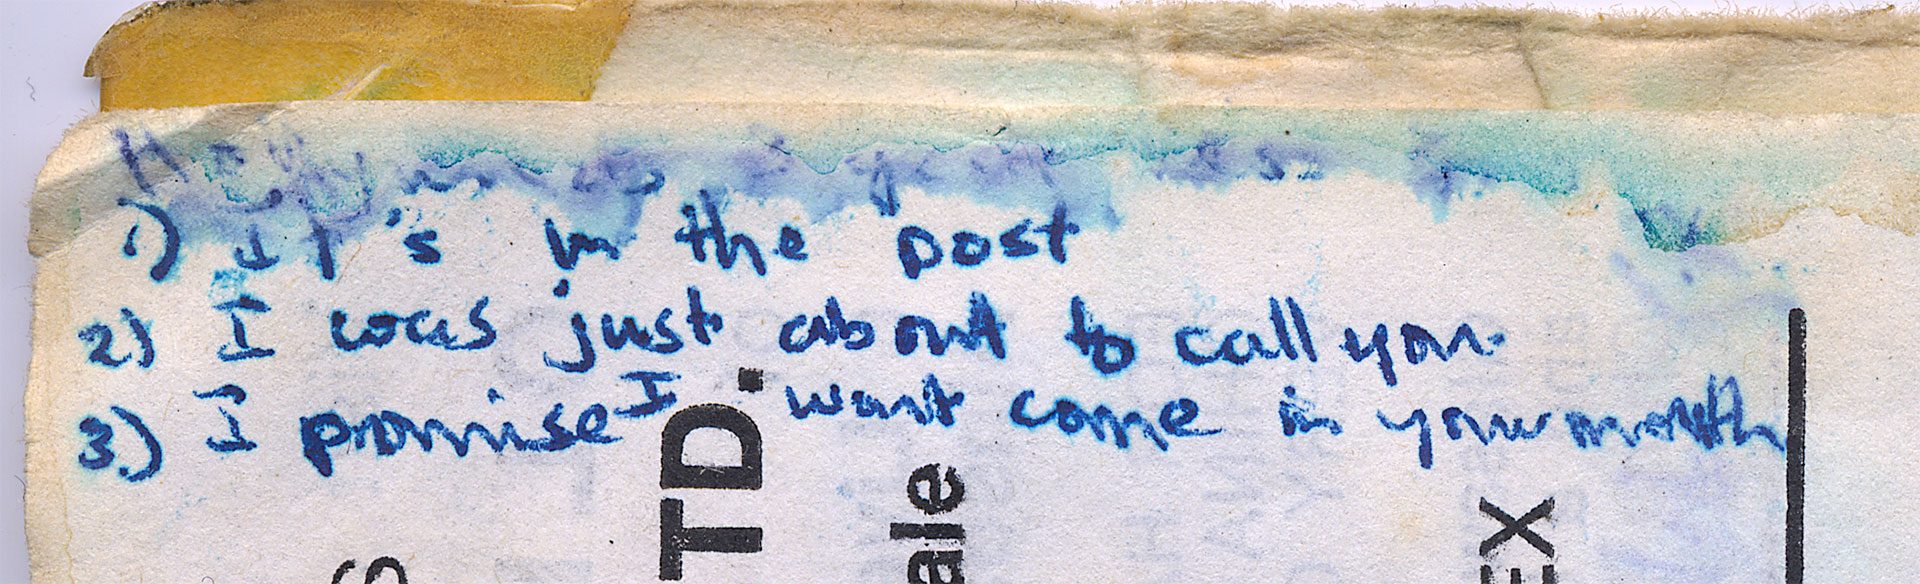 1.) It's in the post
2) I was just about to call you.
3.) I promise I wont come in your mouth
TD.
ale
EX
S